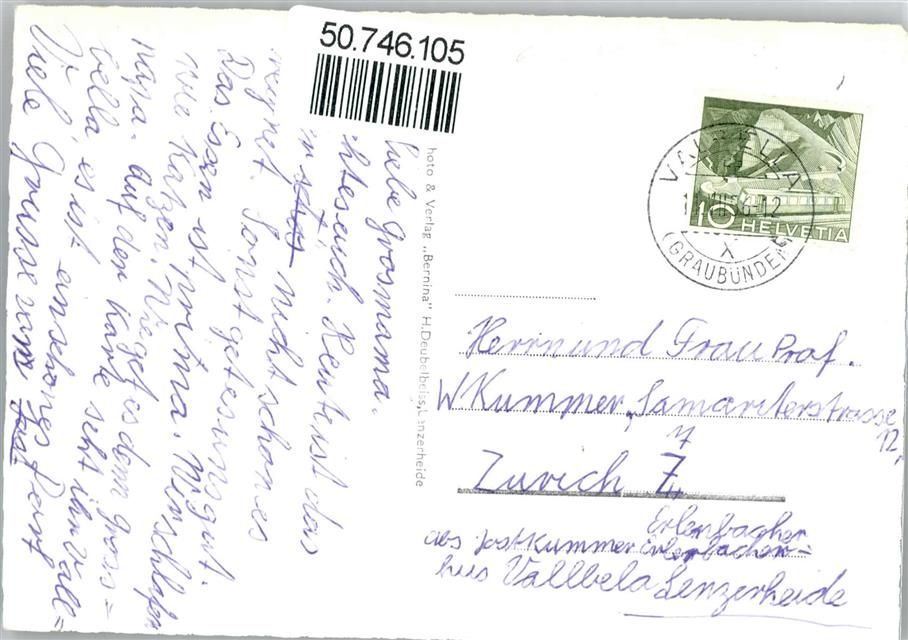 50.746.105
Liebe Grosmama.
hteseuch. Heuteist das
nicht schones
regnet. Sonst getesunsgut.
Das Essen ist prima. Wirschlafen
wie Katzen. Wiegetesdem gros=
papa. Auf der Karte seht ihr Vall=
bella, es ist ein schönes Dorf
Viele Grüsse von Jost
hoto & Verlag „Bernina" H.Deubelbeiss, Lenzerheide
VALBELLA
(GRAUBÜNDEN)
X
10 HELVETIA
Herrn und Frau Prof.
W Kummer, Samariterstrasse
12,
Zürich 7
Erlenbacher
abs Jost Kummer Erlenbacher=
hus Vallbela Lenzerheide